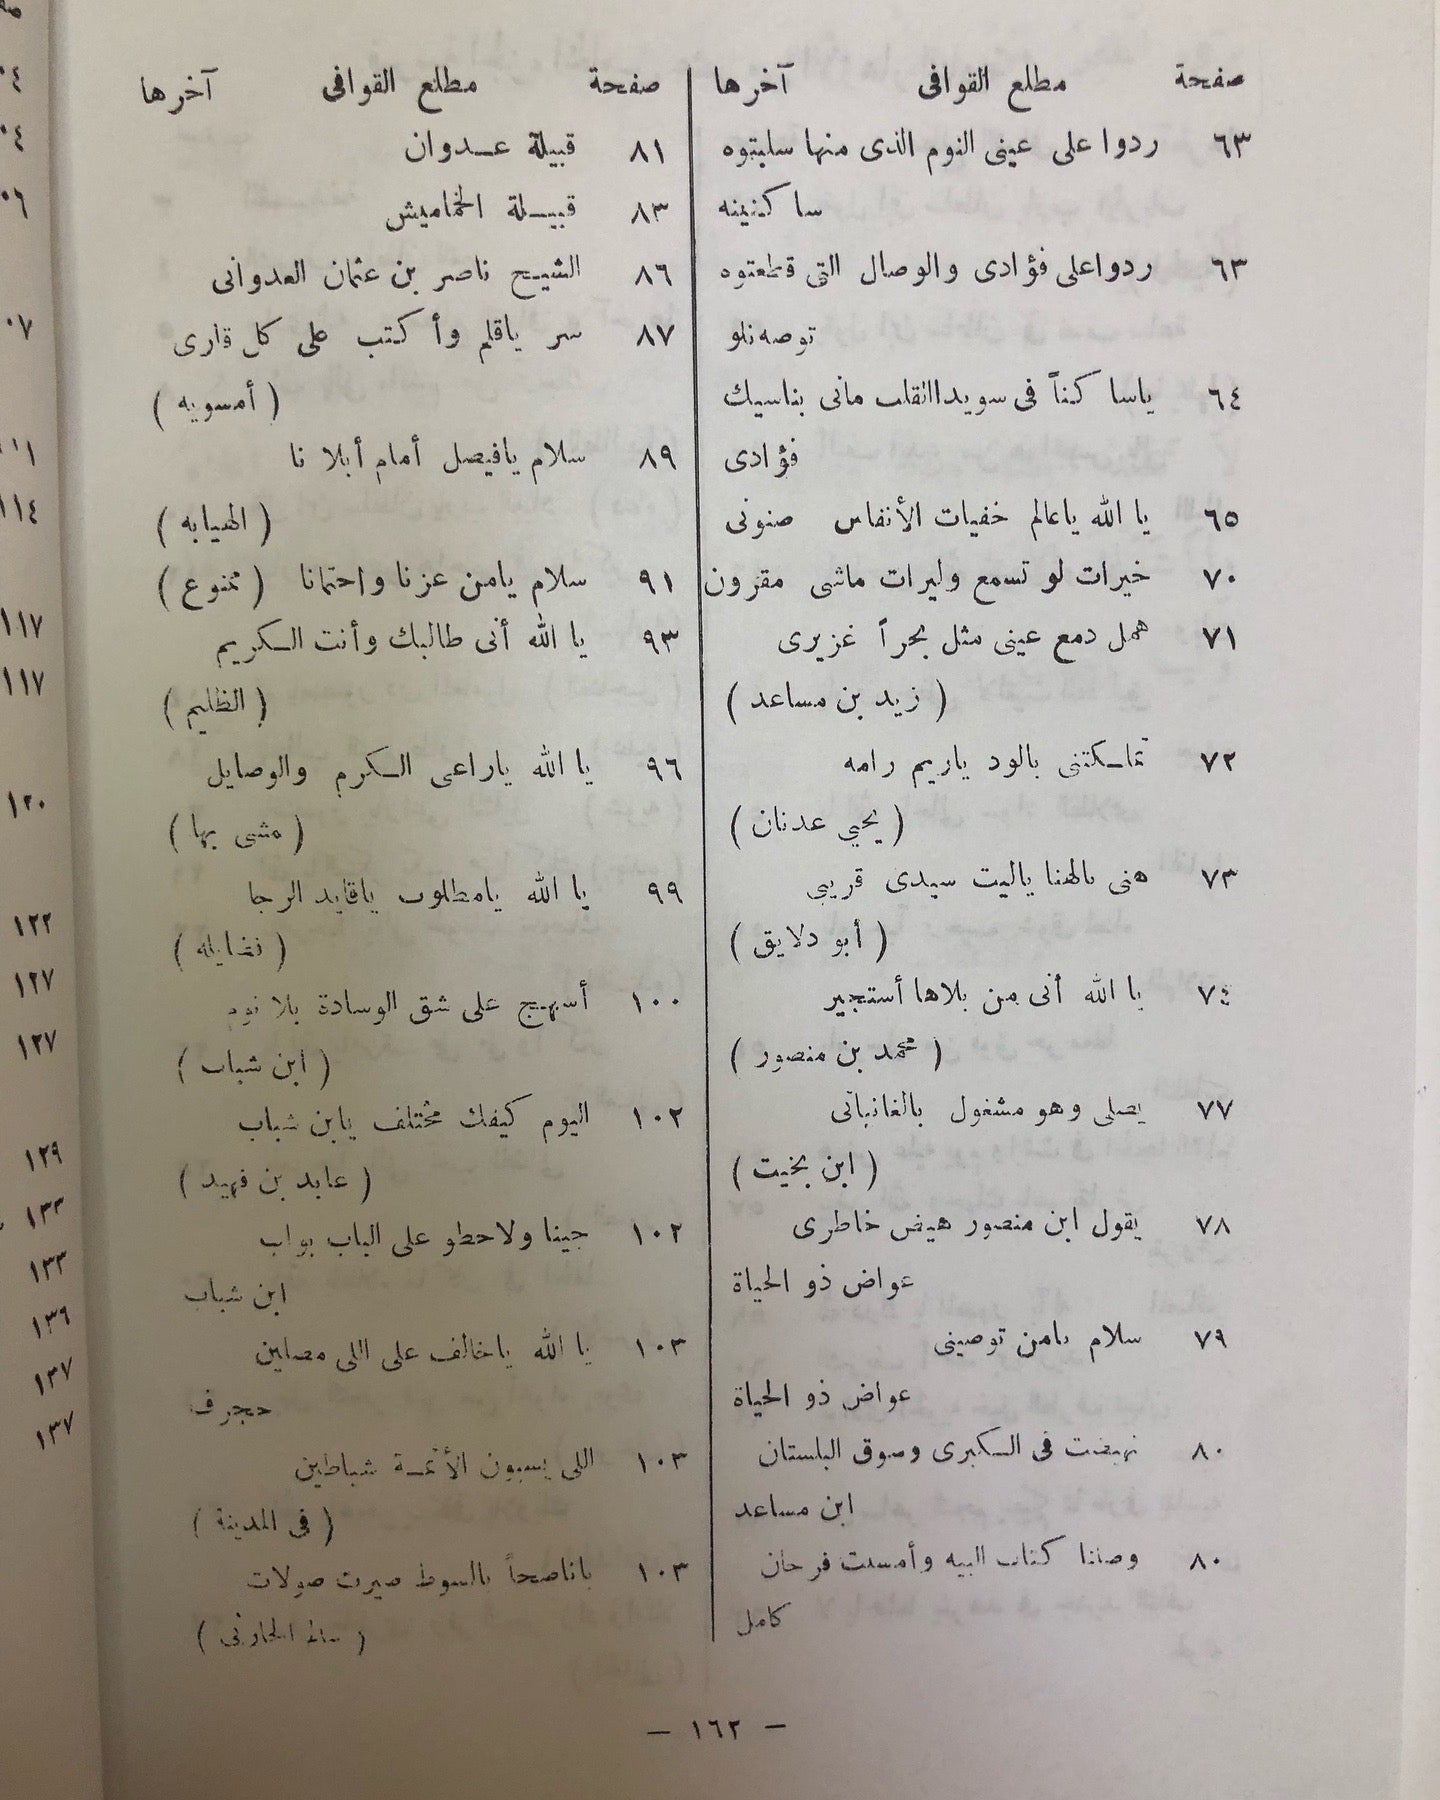 صفحة مطلع القوافى آخرها
٦٣ ردوا على عينى النوم الذى منها سلبتوه
ساكنينه
٦٣ ردواعلى فؤادى والوصال التى قطعتوه
توصه نلو
٦٤ ياساكناً فى سويداالقلب مانى بناسيك
فؤادى
٦٥ يا الله ياعالم خفيات الأنفاس صنونى
٧٠ خيرات لو تسمع وليرات ماشى مقرون
٧١ همل دمع عينى مثل بحراً غزيرى
( زيد بن مساعد )
٧٢ تماسكتنى بالود ياريم رامه
( يحيي عدنان )
٧٣ هنى بالهنا ياليت سيدى قريبى
( أبو دلايق )
٧٤ يا الله أنى من بلاها أستجير
( محمد بن منصور )
٧٧ يصلى وهو مشغول بالغانباتى
( ابن بخيت )
٧٨ يقول ابن منصور هيض خاطرى
عواض ذو الحياة
٧٩ سلام يامن توصينى
عواض ذو الحياة
٨٠ نهضت فى الكبرى وسوق البلستان
ابن مساعد
٨٠ وصلنا كتاب البيه وأمسيت فرحان
كامل
صفحة مطلع القوافى آخرها
٨١ قبيلة عدوان
٨٣ قبيلة الخماميش
٨٦ الشيخ ناصر بن عثمان العدوانى
٨٧ سر ياقلم وأكتب على كل قارى
( أمسويه )
٨٩ سلام يافيصل أمام أبلا نا
( الهيابه )
٩١ سلام يامن عزنا واحتمانا ( ممنوع )
٩٣ يا الله أنى طالبك وأنت الكريم
( الظليم )
٩٦ يا الله ياراعى الكرم والوصايل
( مشى بها )
٩٩ يا الله يامطلوب ياقايد الرجا
( نضايله )
١٠٠ أسهج على شق الوسادة بلا نوم
( ابن شباب )
١٠٢ اليوم كيفك مختلف يابن شباب
( عابد بن فهيد )
١٠٢ جينا ولاحطو على الباب بواب
ابن شباب
١٠٣ يا الله ياخالف على اللى مصلين
حجرف
١٠٣ اللى يسبون الأئمة شباطين
( فى المدينة )
١٠٣ ياناصحاً بالسوط صيرت صولات
الحارثى )
— ١٦٢ —
١١٤
١١٧
١١٧
١٢٠
١٢٢
١٢٧
١٢٧
١٢٩
١٣٣
١٣٣
١٣٦
١٣٧
١٣٧